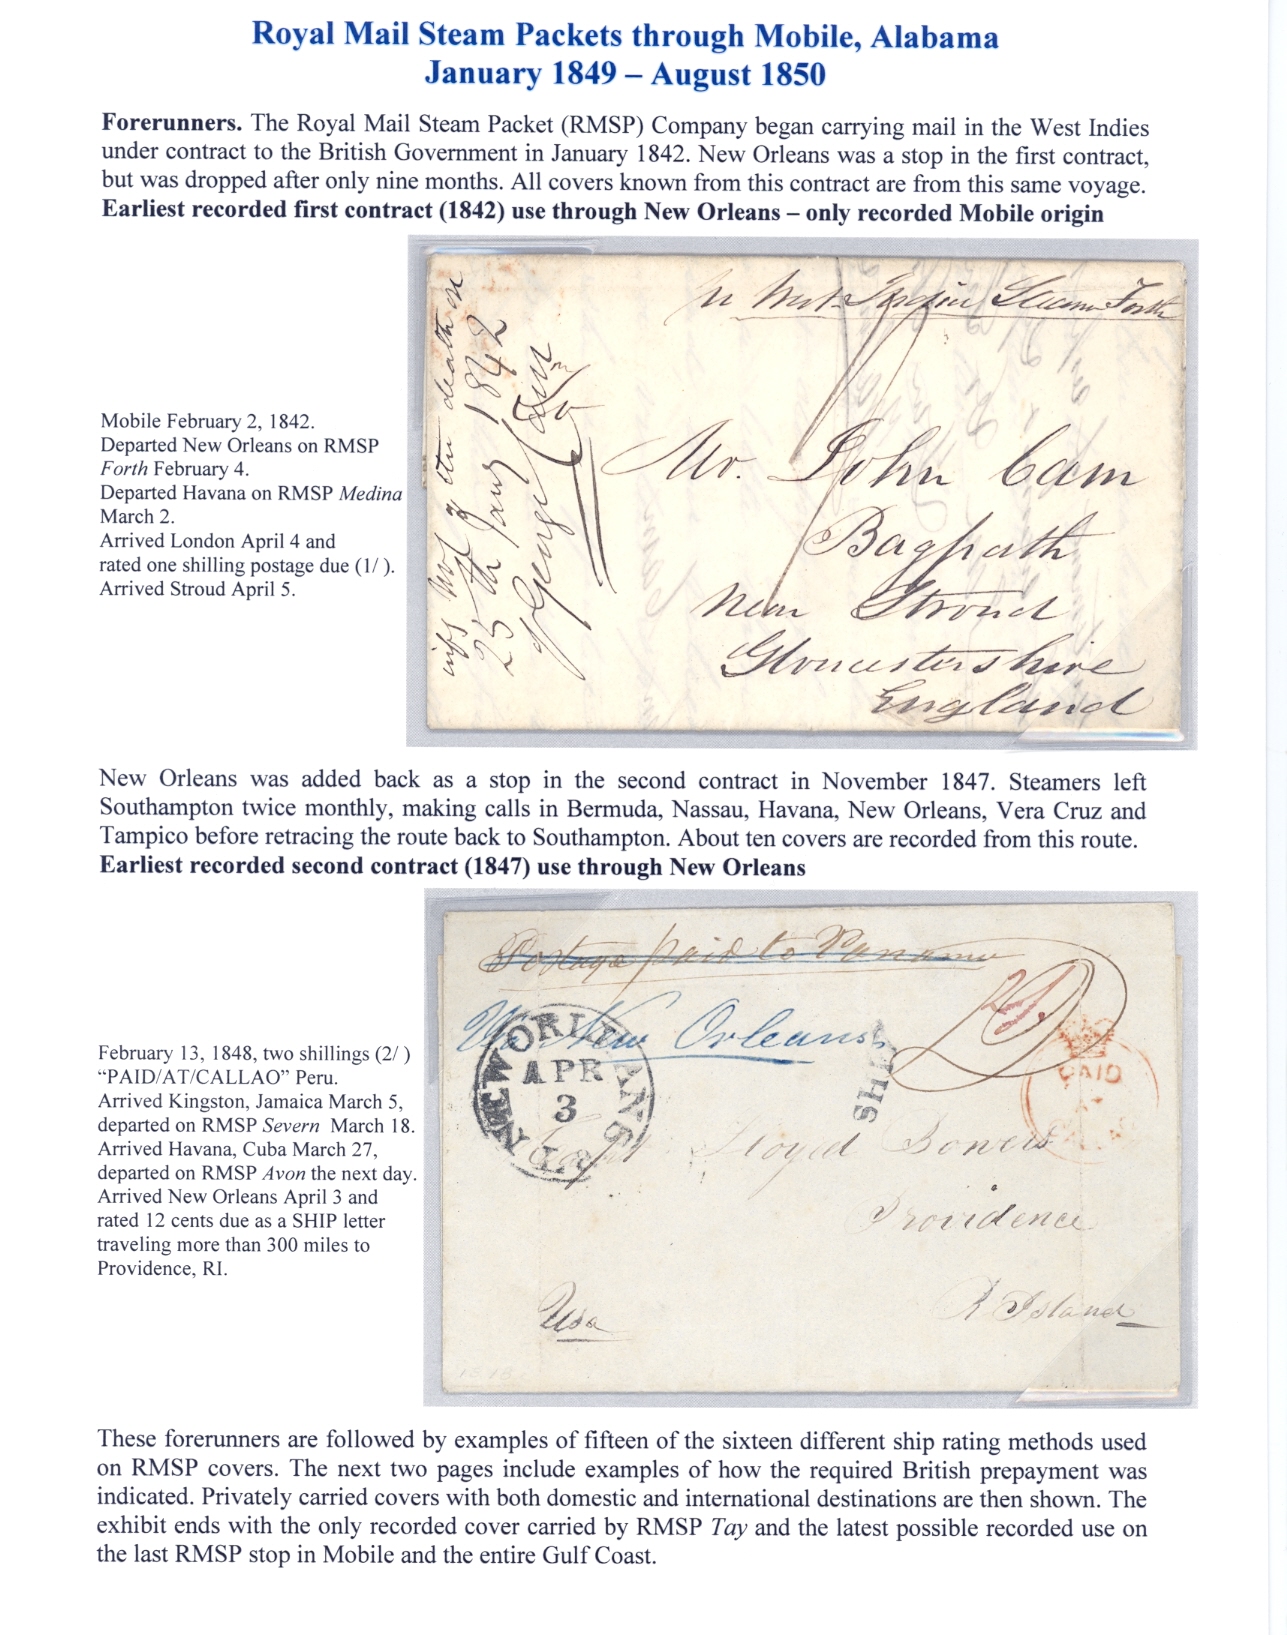 Royal Mail Steam Packets through Mobile, Alabama
January 1849 – August 1850
Forerunners. The Royal Mail Steam Packet (RMSP) Company began carrying mail in the West Indies
under contract to the British Government in January 1842. New Orleans was a stop in the first contract,
but was dropped after only nine months. All covers known from this contract are from this same voyage.
Earliest recorded first contract (1842) use through New Orleans – only recorded Mobile origin
Mobile February 2, 1842.
Departed New Orleans on RMSP
Forth February 4.
Departed Havana on RMSP Medina
March 2.
Arrived London April 4 and
rated one shilling postage due (1/ ).
Arrived Stroud April 5.
West India Steamer Forth
Mr. John Cam
Bagpath
Near Stroud
Gloucestershire
England
death on
25th Jany 1842
George Cam
New Orleans was added back as a stop in the second contract in November 1847. Steamers left
Southampton twice monthly, making calls in Bermuda, Nassau, Havana, New Orleans, Vera Cruz and
Tampico before retracing the route back to Southampton. About ten covers are recorded from this route.
Earliest recorded second contract (1847) use through New Orleans
February 13, 1848, two shillings (2/ )
“PAID/AT/CALLAO” Peru.
Arrived Kingston, Jamaica March 5,
departed on RMSP Severn March 18.
Arrived Havana, Cuba March 27,
departed on RMSP Avon the next day.
Arrived New Orleans April 3 and
rated 12 cents due as a SHIP letter
traveling more than 300 miles to
Providence, RI.
Postage paid to Panama
Via New Orleans
NEW ORLEANS
APR
3
LA
SHIP
PAID
Capt Lloyd Bowers
Providence
R Island
Usa
These forerunners are followed by examples of fifteen of the sixteen different ship rating methods used
on RMSP covers. The next two pages include examples of how the required British prepayment was
indicated. Privately carried covers with both domestic and international destinations are then shown. The
exhibit ends with the only recorded cover carried by RMSP Tay and the latest possible recorded use on
the last RMSP stop in Mobile and the entire Gulf Coast.